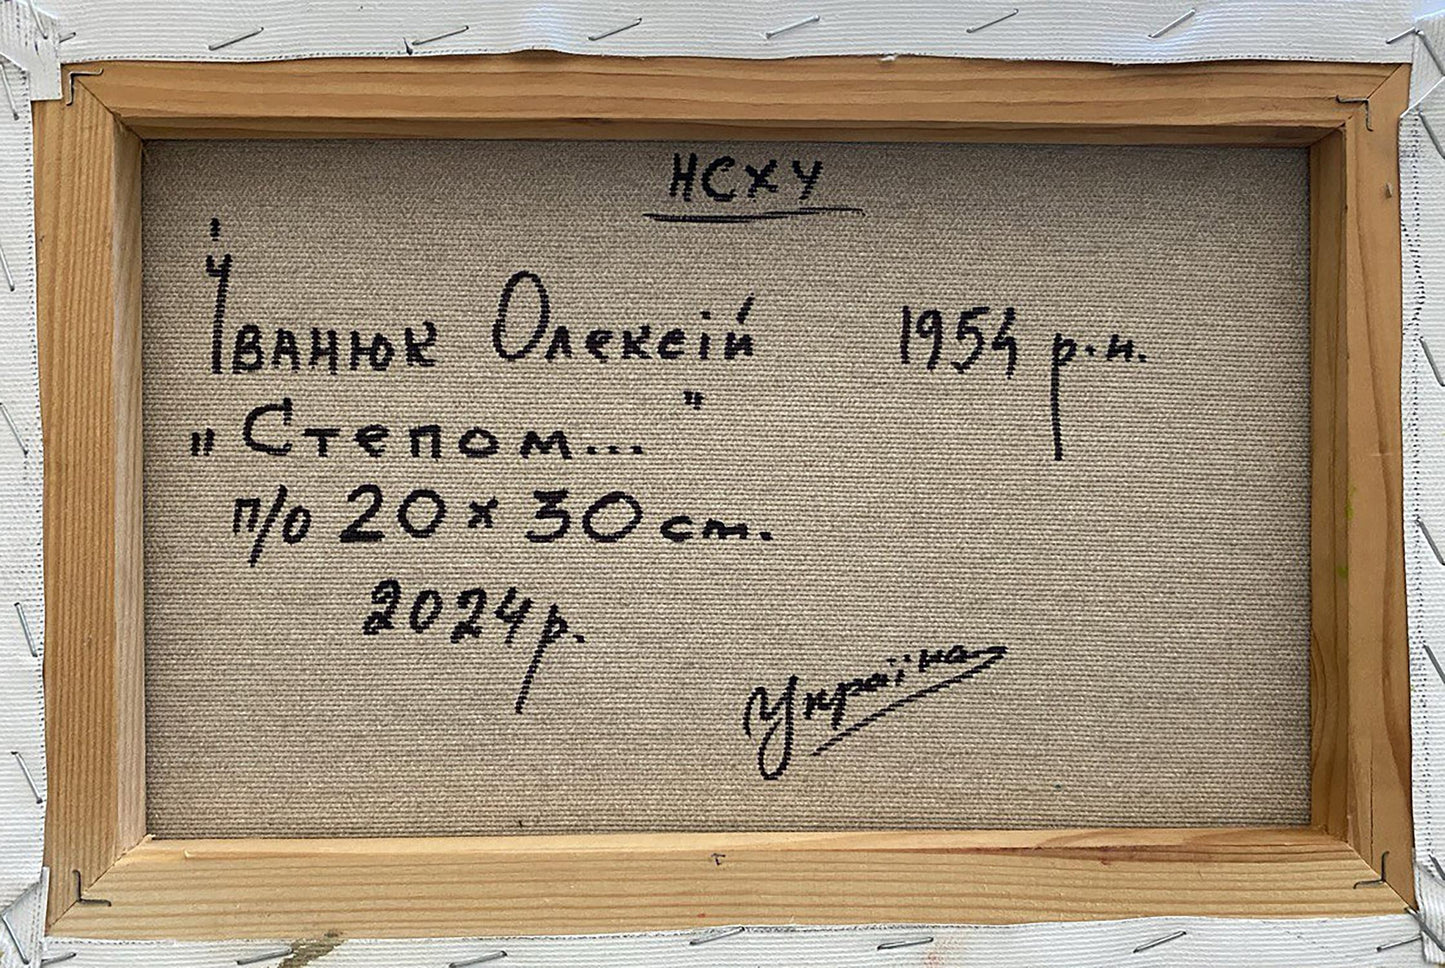 НСХУ
Іванюк Олексій 1954 р.н.
„Степом..."
п/о 20 x 30 cm.
2024р.
Україна